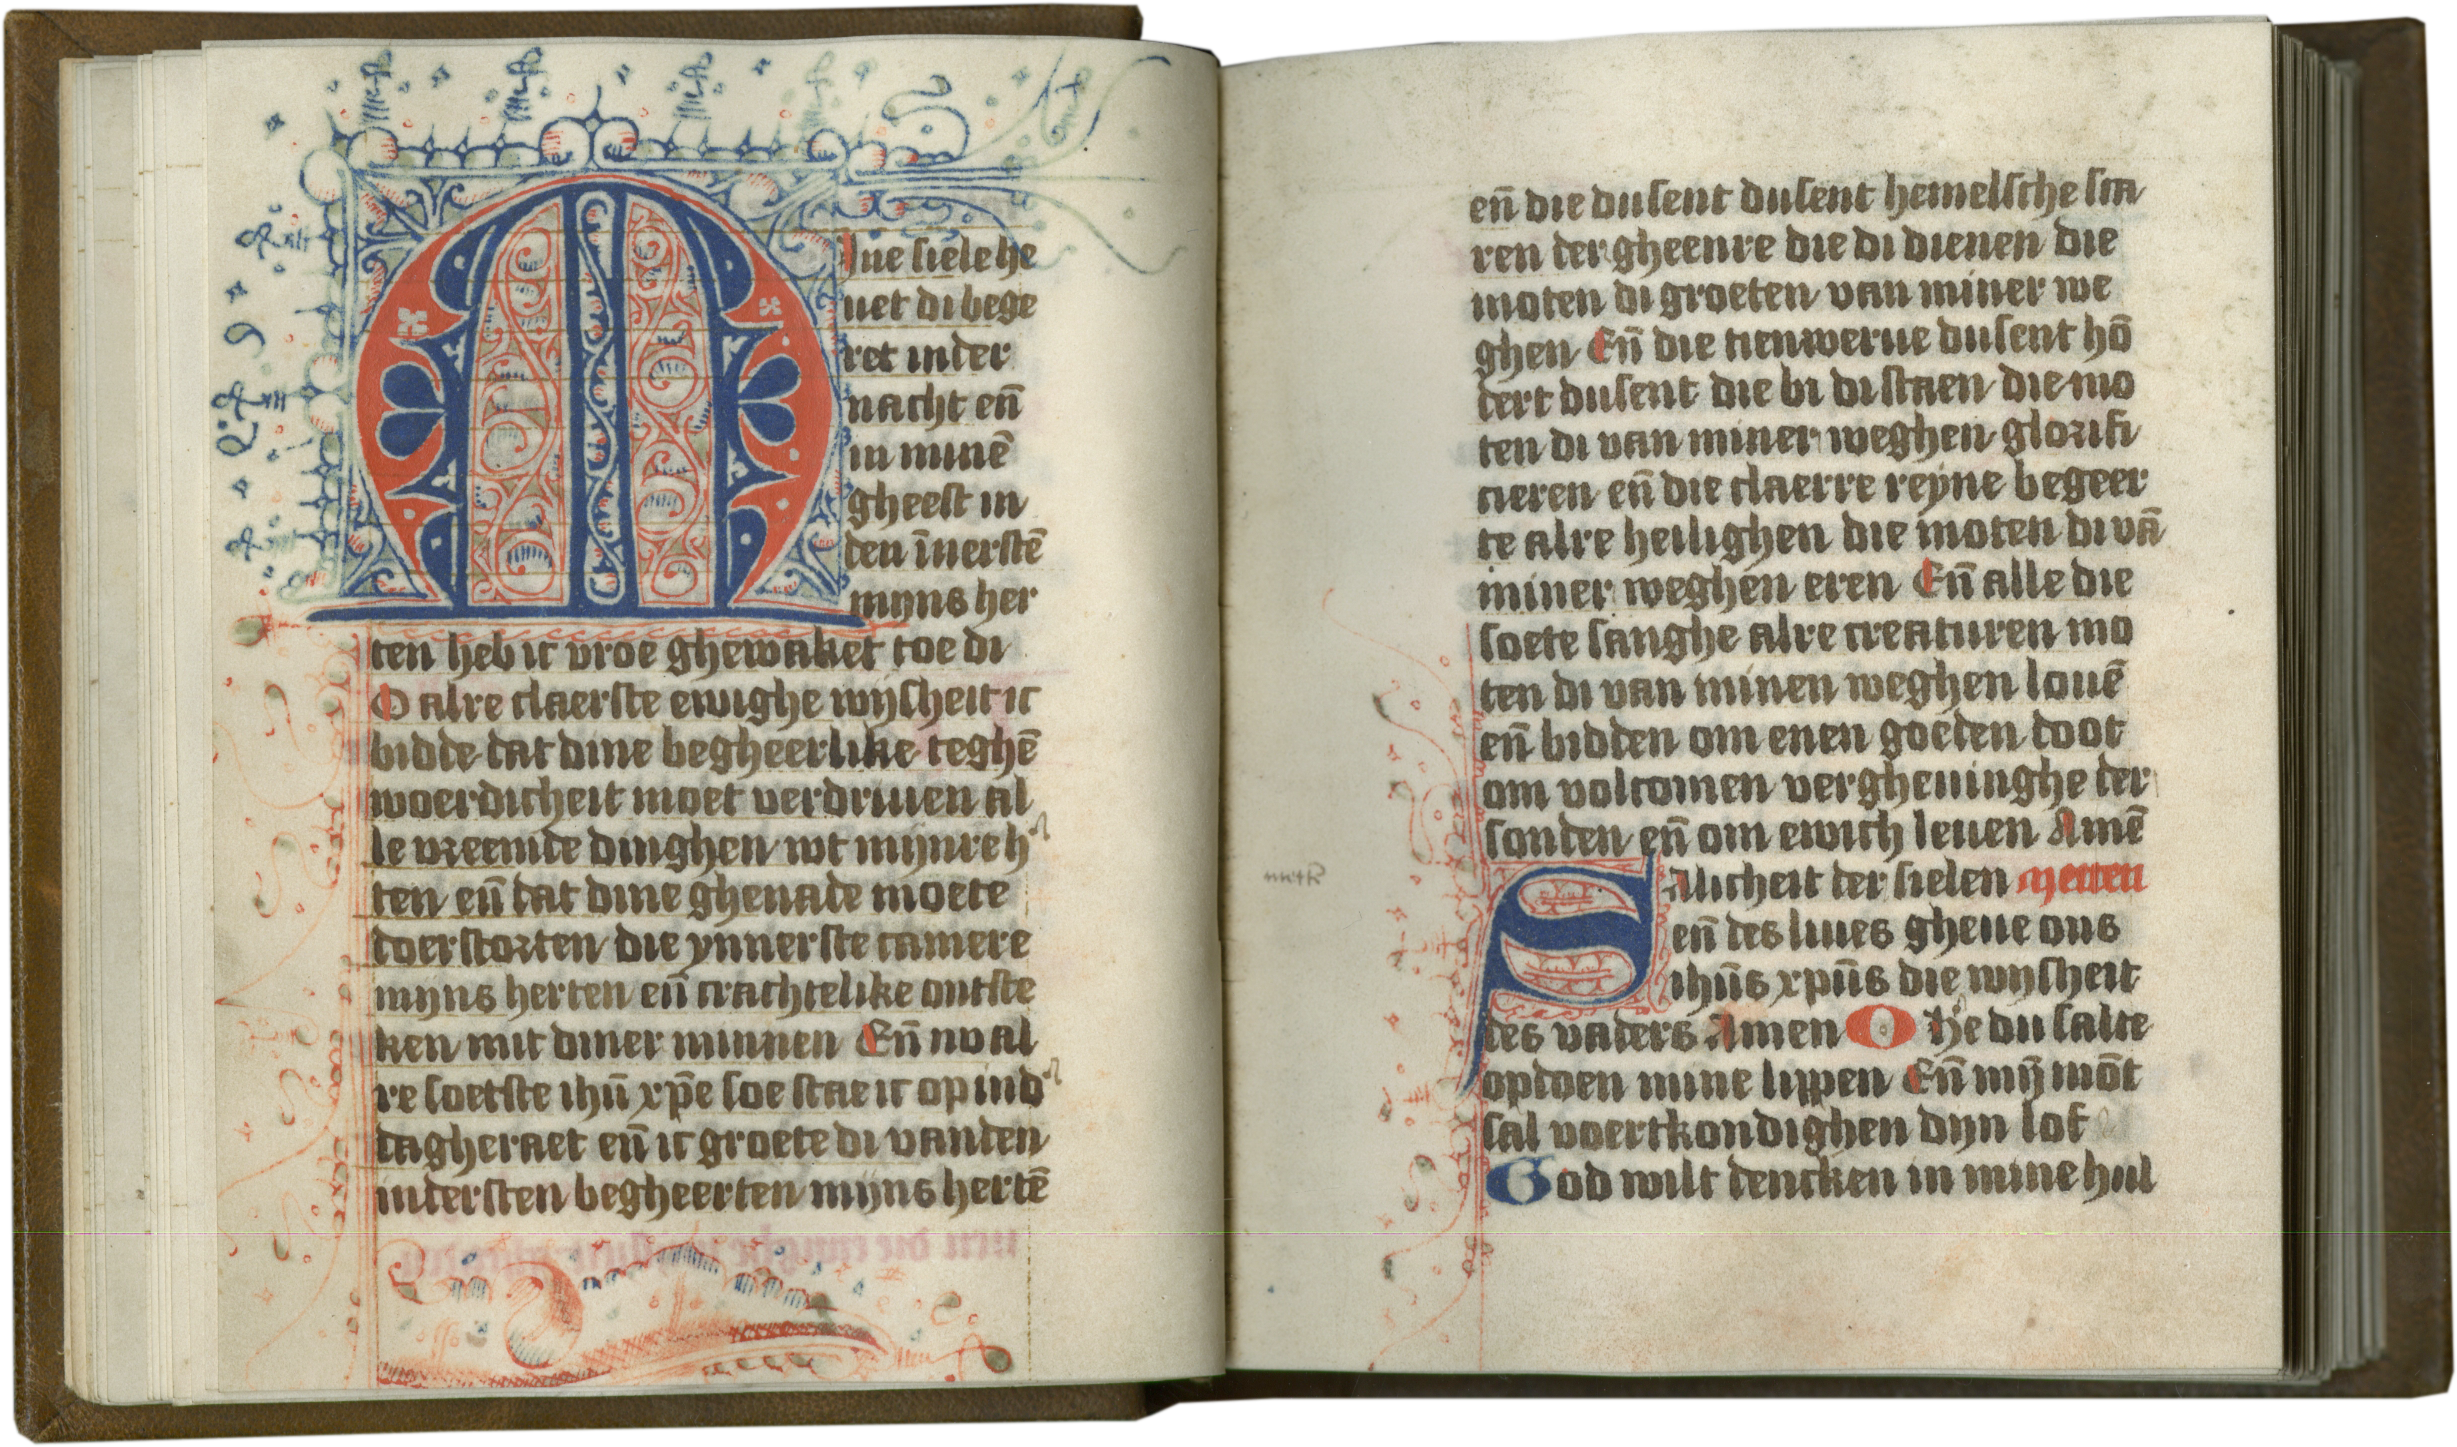 Mine siele he
uet di bege
ret in der
nacht en̄
in minē
gheest in
den īnerstē
mijns her
ten heb ic vroe ghewaket toe di
O alre claerste ewighe wijsheit ic
bidde dat dine begheerlike teghē
woerdicheit moet verdriuen al
le vreemde dinghen wt mijnre h'
ten en̄ dat dine ghenade moete
doerstorten die ynnerste camere
mijns herten en̄ crachtelike ontste
ken mit diner minnen En̄ nv al
re soetste ihū xp̄e soe stae ic op ind'
dagheraet en̄ ic groete di vanden
indersten begheerten mijns hertē
en̄ die dusent dusent hemelsche sca
ren der gheenre die di dienen die
moten di groeten van miner we
ghen En̄ die tienwerue dusent hō
dert dusent die bi di staen die mo
ten di van miner weghen glorifi
cieren en̄ die claerre reyne begeer
te alre heilighen die moten di vā
miner weghen eren En̄ alle die
soete sanghe alre creaturen mo
ten di van minen weghen louē
en̄ bidden om enen goeden doot
om volcomen vergheuinghe der
sonden en̄ om ewich leuen Amē
SAlicheit der sielen metten
en̄ des liues gheue ons
ihūs xpūs die wijsheit
des vaders Amen O he du salte
opdoen mine lippen En̄ mȳ mōt
sal voertkondighen dyn lof
God wilt dencken in mine hul